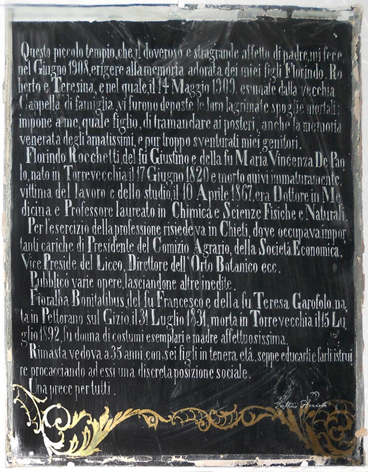 Questo piccolo tempio, che il doveroso e stragrande affetto di padre, mi fece
nel Giugno 1908, erigere alla memoria adorata dei miei figli Florindo, Ro
berto e Teresina, e nel quale, il 14 Maggio 1909, esumate dalla vecchia
Cappella di famiglia, vi furono deposte le loro lagrimate spoglie mortali:
impone a me, quale figlio, di tramandare ai posteri, anche la memoria
venerata degli amatissimi, e pur troppo sventurati miei genitori.
Florindo Rocchetti del fu Giustino e della fu Maria Vincenza De Pao
lo, nato in Torrevecchia il 17 Giugno 1820 e morto quivi immaturamente,
vittima del lavoro e dello studio, il 10 Aprile 1867, era Dottore in Me
dicina e Professore laureato in Chimica e Scienze Fisiche e Naturali.
Per l'esercizio della professione risiedeva in Chieti, dove occupava impor
tanti cariche di Presidente del Comizio Agrario, della Società Economica,
Vice Preside del Liceo, Direttore dell'Orto Botanico ecc.
Pubblicò varie opere, lasciandone altre inedite.
Fioralba Bonitatibus del fu Francesco e della fu Teresa Garofolo, na
ta in Pettorano sul Gizio, il 31 Luglio 1831, morta in Torrevecchia il 15 Lu
glio 1892, fu donna di costumi esemplari e madre affettuosissima.
Rimasta vedova a 35 anni, con sei figli in tenera età, seppe educarli e farli istrui
re procacciando ad essi una discreta posizione sociale.
Una prece per tutti.